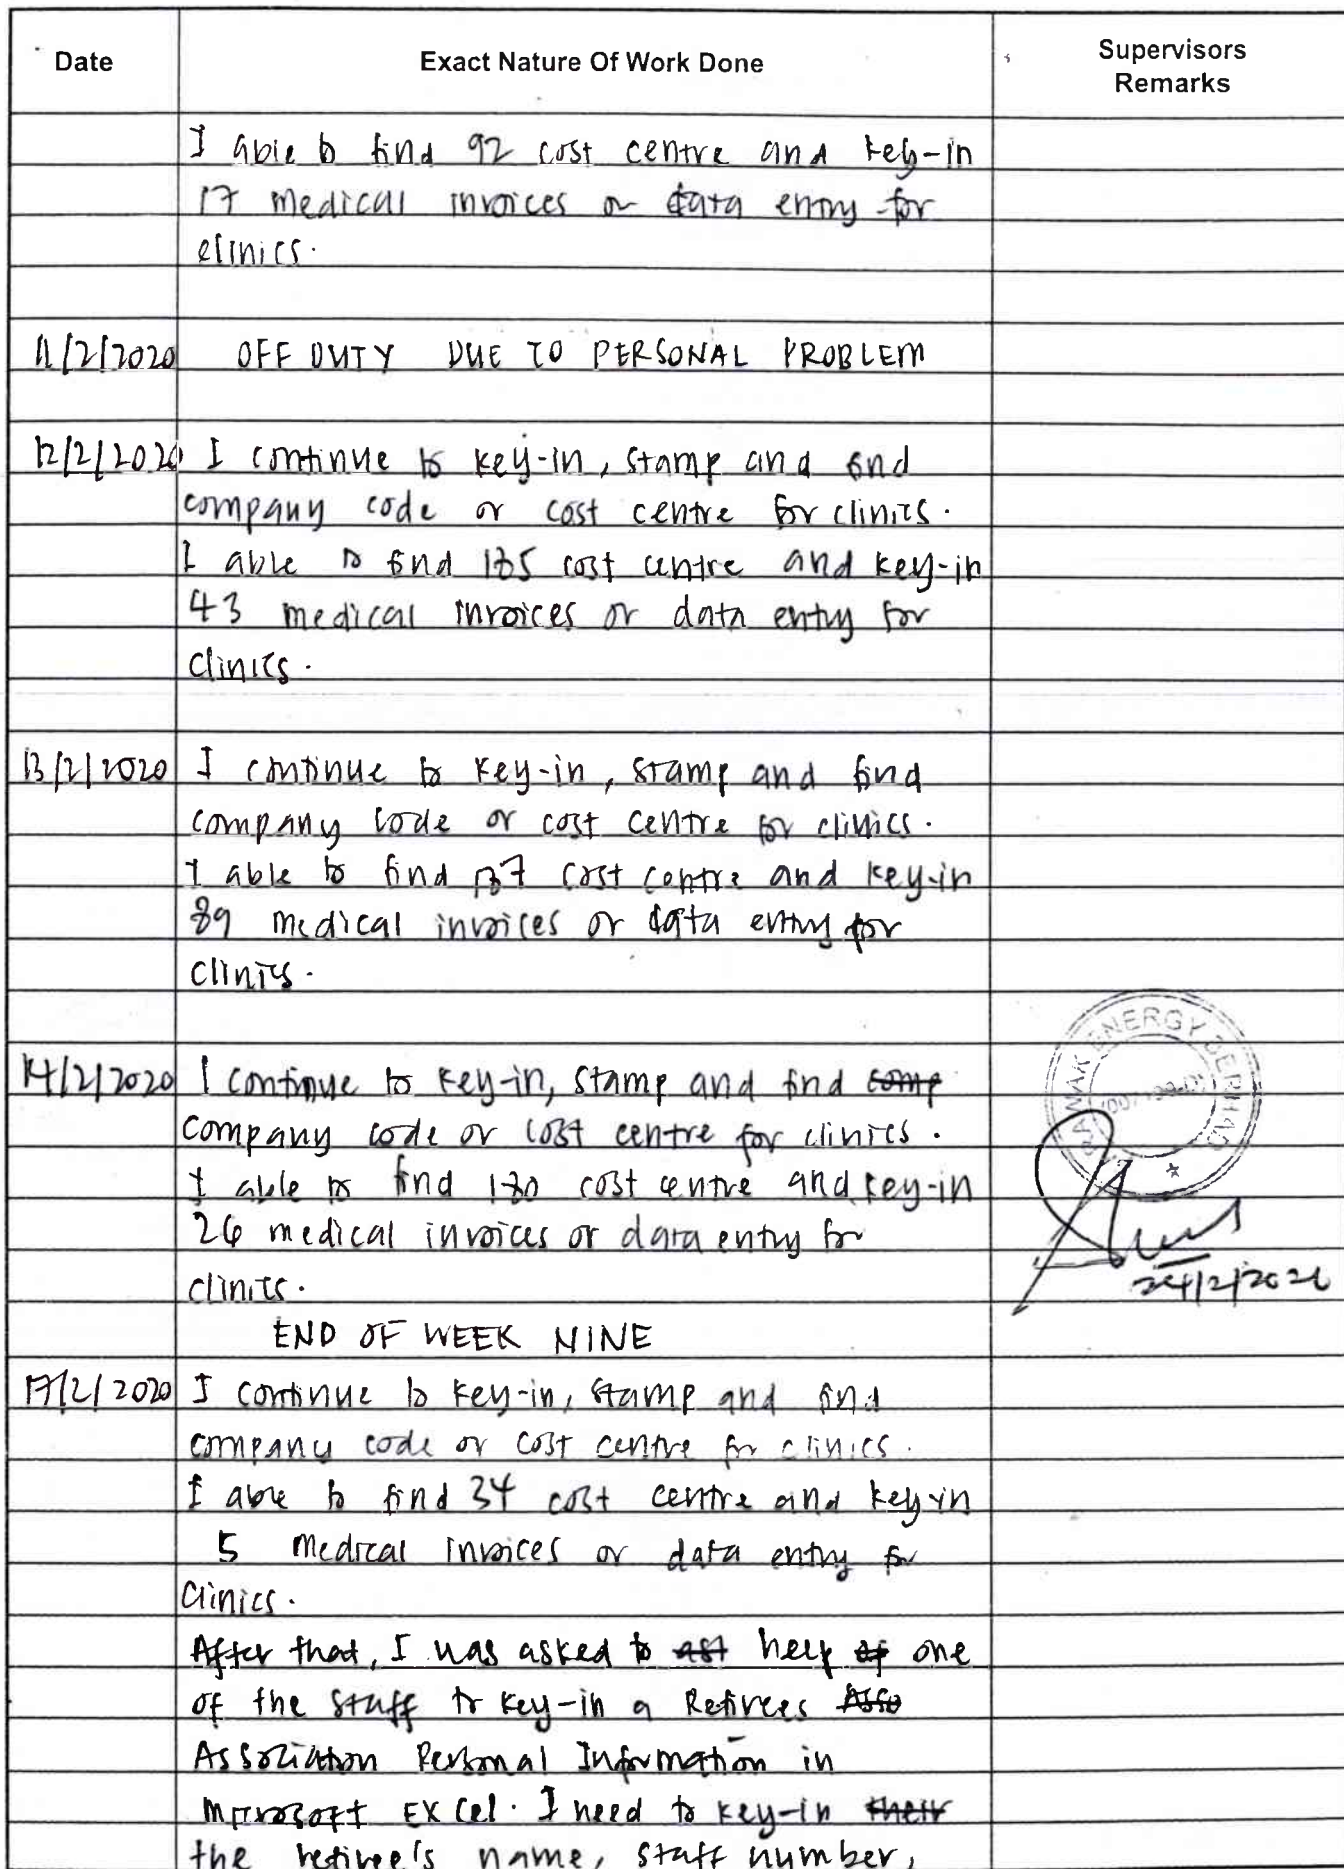 Date Exact Nature Of Work Done Supervisors
Remarks
I able to find 92 cost centre and key-in
17 medical invoices or data entry for
clinics.
11/2/2020 OFF DUTY DUE TO PERSONAL PROBLEM
12/2/2020 I continue to key-in, stamp and find
company code or cost centre for clinics.
I able to find cost centre and key-in
43 medical invoices or data entry for
clinics.
13/2/2020 I continue to key-in, stamp and find
company code or cost centre for clinics.
I able to find 137 cost centre and key-in
89 medical invoices or data entry for
clinics.
14/2/2020 I continue to key-in, stamp and find comp
company code or cost centre for clinics.
I able to find cost centre and key-in
26 medical invoices or data entry for
clinics.
SARAWAK ENERGY BERHAD
24/2/2020
END OF WEEK NINE
17/2/2020 I continue to key-in, stamp and find
company code or cost centre for clinics.
I able to find 34 cost centre and key-in
5 medical invoices or data entry for
clinics.
After that, I was asked to ast help of one
of the staff to key-in a Retirees Asso
Association Personal Information in
Microsoft EXCel. I need to key-in their
the retiree's name, staff number,